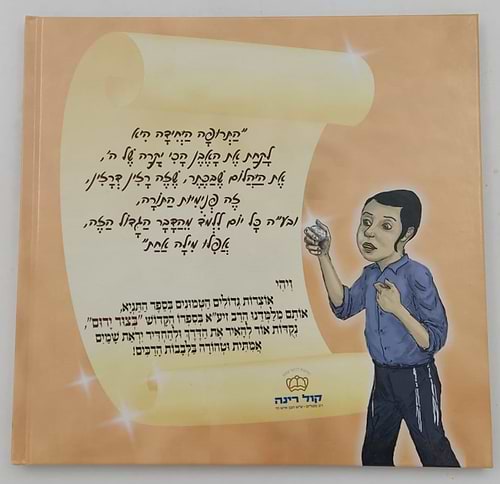 "הַתְּרוּפָה הַיְּחִידָה הִיא
לָקַחַת אֶת הָאֶבֶן הֲכִי יְקָרָה שֶׁל ה',
אֶת הַיַּהֲלוֹם שֶׁבַּכֶּתֶר, שֶׁזֶּה רָזִין דְּרָזִין,
זֶה פְּנִימִיּוּת הַתּוֹרָה,
ובע"ה כָּל יוֹם לִלְמֹד מֵהַדָּבָר הַגָּדוֹל הַזֶּה,
אֲפִלּוּ מִילָה אַחַת"
וַיְהִי
אוֹצָרוֹת גְּדוֹלִים הַטְּמוּנִים בְּסֵפֶר הַתַּנְיָא,
אוֹתָם מְלַמְּדֵנוּ הָרַב זיע"א בְּסִפְרוֹ הַקָּדוֹשׁ "בְּצוּר יָרוּם",
נְקֻדּוֹת אוֹר לְהָאִיר אֶת הַדֶּרֶךְ וּלְהַחְדִּיר יִרְאַת שָׁמַיִם
אֲמִתִּית וּטְהוֹרָה בַּלְּבָבוֹת הָרַכִּים!
קול רינה